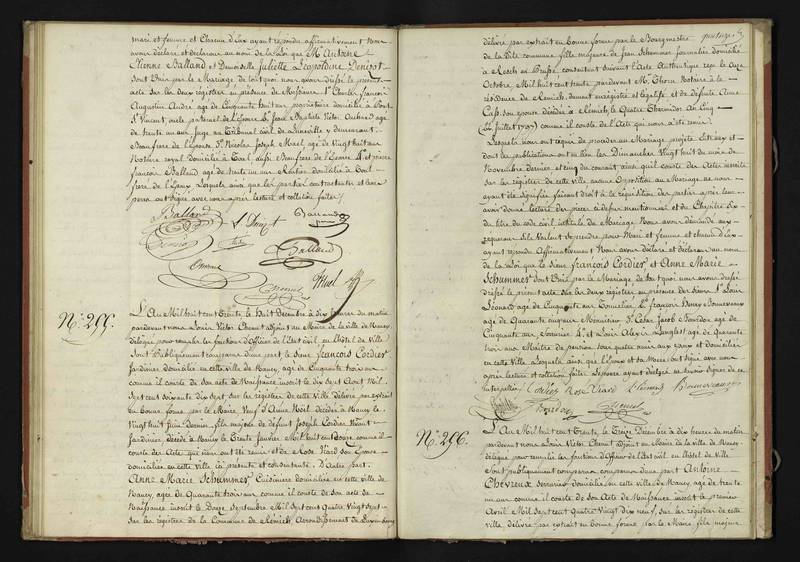 mari et femme et chacun d'eux ayant répondu affirmativement nous
avons déclaré et déclarons au nom de la loi que Mr Antoine
Etienne Balland et Demoiselle Juliette Léopoldine Denizot
sont unis par le Mariage de tout quoi nous avons dressé le présent
acte sur les deux registres en présence de Messieurs Sr Charles françois
Augustin André agé de Cinquante huit ans propriétaire domicilié à Pont
St Vincent oncle paternel de l'Epouse Sr Jean Baptiste Victor agé
de trente un ans Juge au Tribunal civil de Lunéville y demeurant
Beaufrere de l'Epouse Sr Nicolas Joseph agé de Vingt huit ans
Notaire royal domicilié à Toul aussi Beaufrere de l'Epouse
françois Balland agé de trente un ans domicilié à Toul
frere de l'Epoux Lesquels ainsi que les parties contractantes et leurs
peres ont signé avec nous après lecture et collation faites
Balland
L. Denizot
Balland
Nº 295.
L'An Mil huit cent Trente, le huit Décembre à dix heures du matin
pardevant nous Louis Victor Chenut adjoint au Maire de la ville de Nancy
délégué pour remplir les fonctions d'Officier de l'Etat civil, en l'hôtel de Ville
sont publiquement comparus d'une part le Sieur françois Cordier
Jardinier domicilié en cette ville de Nancy, agé de Cinquante trois ans
comme il conste de son acte de Naissance inscrit le dix sept Aout Mil
sept cent soixante dix sept sur les registres de cette ville délivré par extrait
en bonne forme par le Maire Veuf d'Anne Noël décédée à Nancy le
Vingt huit Juin Dernier fils majeur de défunt Joseph Cordier Vivant
Jardinier décédé à Nancy le Trente Janvier Mil huit cent douze comme il
conste des Actes qui nous ont été remis et de Rose Viard son Epouse
domiciliée en cette ville ici présente et consentante. D'autre part
Anne Marie Schummer Cuisiniere domiciliée en cette ville de
Nancy, agée de Quarante trois ans comme il conste de son acte de
Naissance inscrit le Douze Septembre Mil sept cent Quatre Vingt sept
sur les registres de la Commune de Rémich, Arrondissement de Luxembourg
délivré par extrait en bonne forme par le Bourgmestre
de la dite commune fille majeure de Jean Schummer Journalier domicilié
à en consentant suivant l'Acte Authentique reçu le onze
Octobre Mil huit cent trente pardevant Mr Notaire à la
résidence de Rémich, dument enregistré et légalisé et de défunte Anne
son épouse décédée à Rémich, le Quatre Thermidor An Cinq
(22 Juillet 1797) comme il conste de l'Acte qui nous a été remis
Lesquels nous ont requis de procéder au Mariage projeté Entr'eux et
dont les publications ont eu lieu les Dimanches Vingt huit du mois de
Novembre dernier et cinq du courant ainsi qu'il conste des Actes inscrits
sur les registres de cette ville aucune Opposition au Mariage ne nous
ayant été signifiée faisant droit à la réquisition des parties après leur
avoir donné lecture des pieces ci dessus mentionnées et du Chapitre six
du titre du code civil intitulé du Mariage Nous avons demandé aux
requerans s'ils Veulent se prendre pour Mari et femme et chacun d'eux
ayant répondu Affirmativement Nous avons déclaré et déclarons au nom
de la Loi que le Sieur françois Cordier et Anne Marie
Schummer sont Unis par le Mariage de tout quoi nous avons dressé
le présent acte sur les deux registres en présence des Sieurs Sr Louis
Léonard agé de Cinquante ans Tonnelier Sr françois Henry
agé de Quarante cinq ans Menuisier Sr César Jacob Bourdon agé de
Cinquante ans et Sr Louis Alexis Langlois agé de Quarante
trois ans Maître de pension tous quatre amis des Epoux et domiciliés
en cette ville Lesquels ainsi que l'Epoux et sa Mere ont signé avec nous
après lecture et collation faites l'épouse ayant déclaré ne savoir signer de ce
interpellée
Cordier Rose Viard
Nº 296.
L'An Mil huit cent Trente, le Treize Décembre à dix heures du matin
pardevant nous Louis Victor Chenut adjoint au Maire de la ville de Nancy
délégué pour remplir les fonctions d'Officier de l'Etat civil en l'hôtel de Ville
sont publiquement comparus d'une part Antoine
Chevreux Serrurier domicilié en cette ville de Nancy, agé de trente
un ans comme il conste de son Acte de Naissance inscrit le premier
Avril Mil sept cent Quatre Vingt dix neuf, sur les registres de cette
ville délivré par extrait en bonne forme par le Maire fils majeur